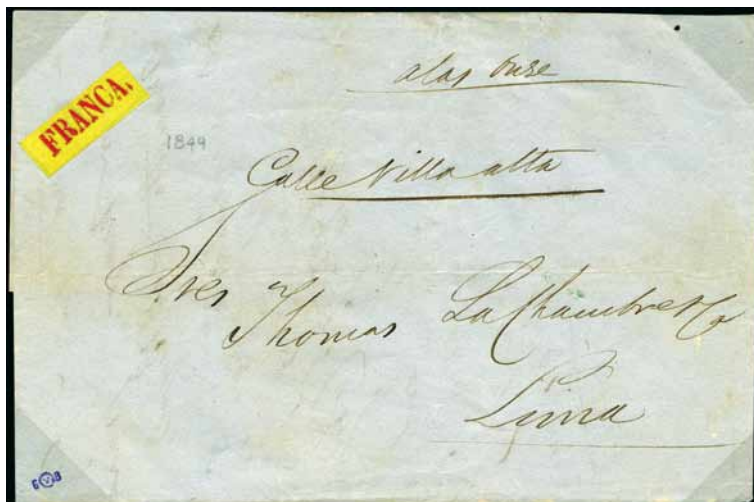 FRANCA.
a las onze
1849
Calle Villa alta
Sres
Thomas LaChambre & Co
Lima